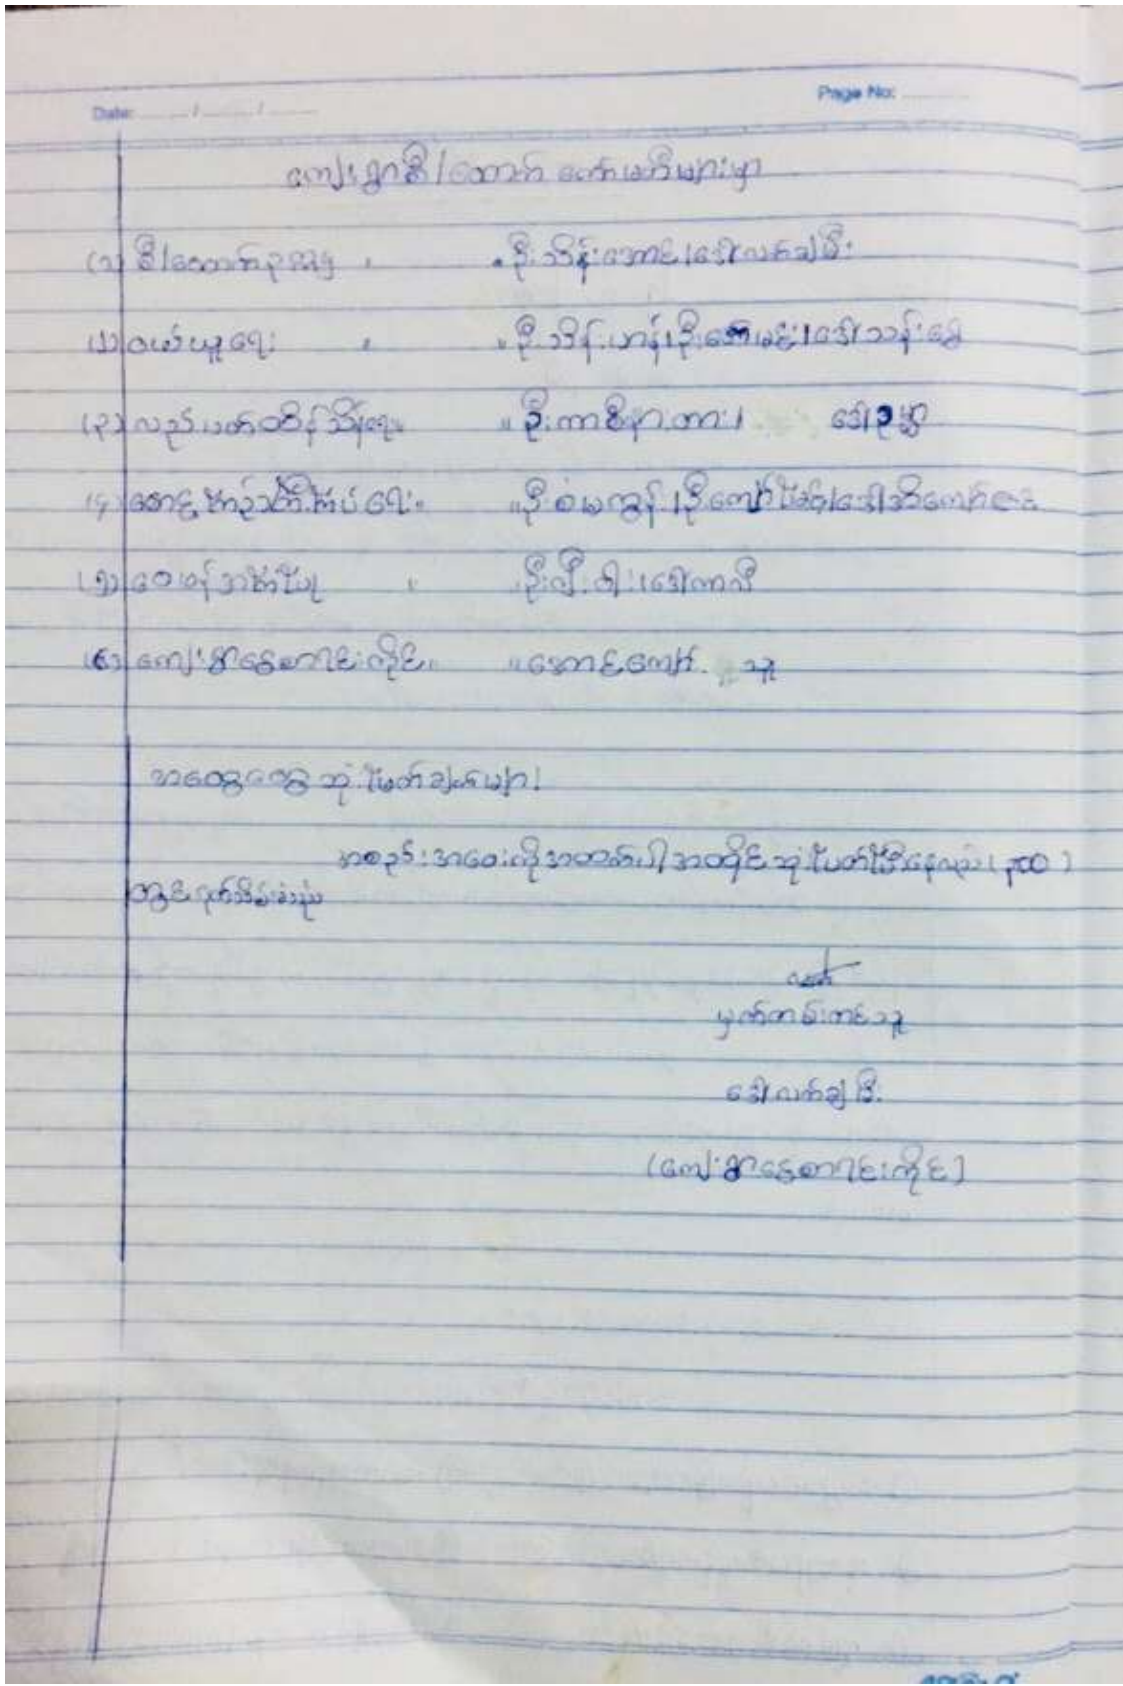 Date: ......../......../........
Page No: ............
ကျေးရွာစီ/ထောက် ကော်မတီများမှာ
(၁) စီ/ထောက်ဥက္ကဌ " " ဦးသိန်းအောင်/ဒေါ်လက်ချမီး
(၂) ဝယ်ယူရေး " " ဦးသိန်းဟန်/ဦးအော်မင်း/ဒေါ်သန်းရွှေ
(၃) လည်ပတ်ထိန်းသိမ်းရေး " " ဦးကာစီနာတား/ ဒေါ်ဥမ္မာ
(၄) စောင့်ကြည့်ကြီးကြပ်ရေး " " ဦးစံမကွန်း/ဦးကျော်မြင့်/ဒေါ်အိကျော်
(၅) ဝေဖန်အကြံပြု " ဦးလှီးဝါး/ဒေါ်ကာလီ
(၆) ကျေးရွာငွေစာရင်းကိုင် " " အောင်ကျော် သူ
အထွေထွေဆုံးဖြတ်ချက်များ/
အစည်းအဝေးကိုအထက်ပါအတိုင်းဆုံးဖြတ်ပြီးနေ့လည် (၃း၀၀)
တွင်ရုတ်သိမ်းခဲ့သည်
မှတ်တမ်းတင်သူ
ဒေါ်လက်ချမီး
(ကျေးရွာငွေစာရင်းကိုင်)